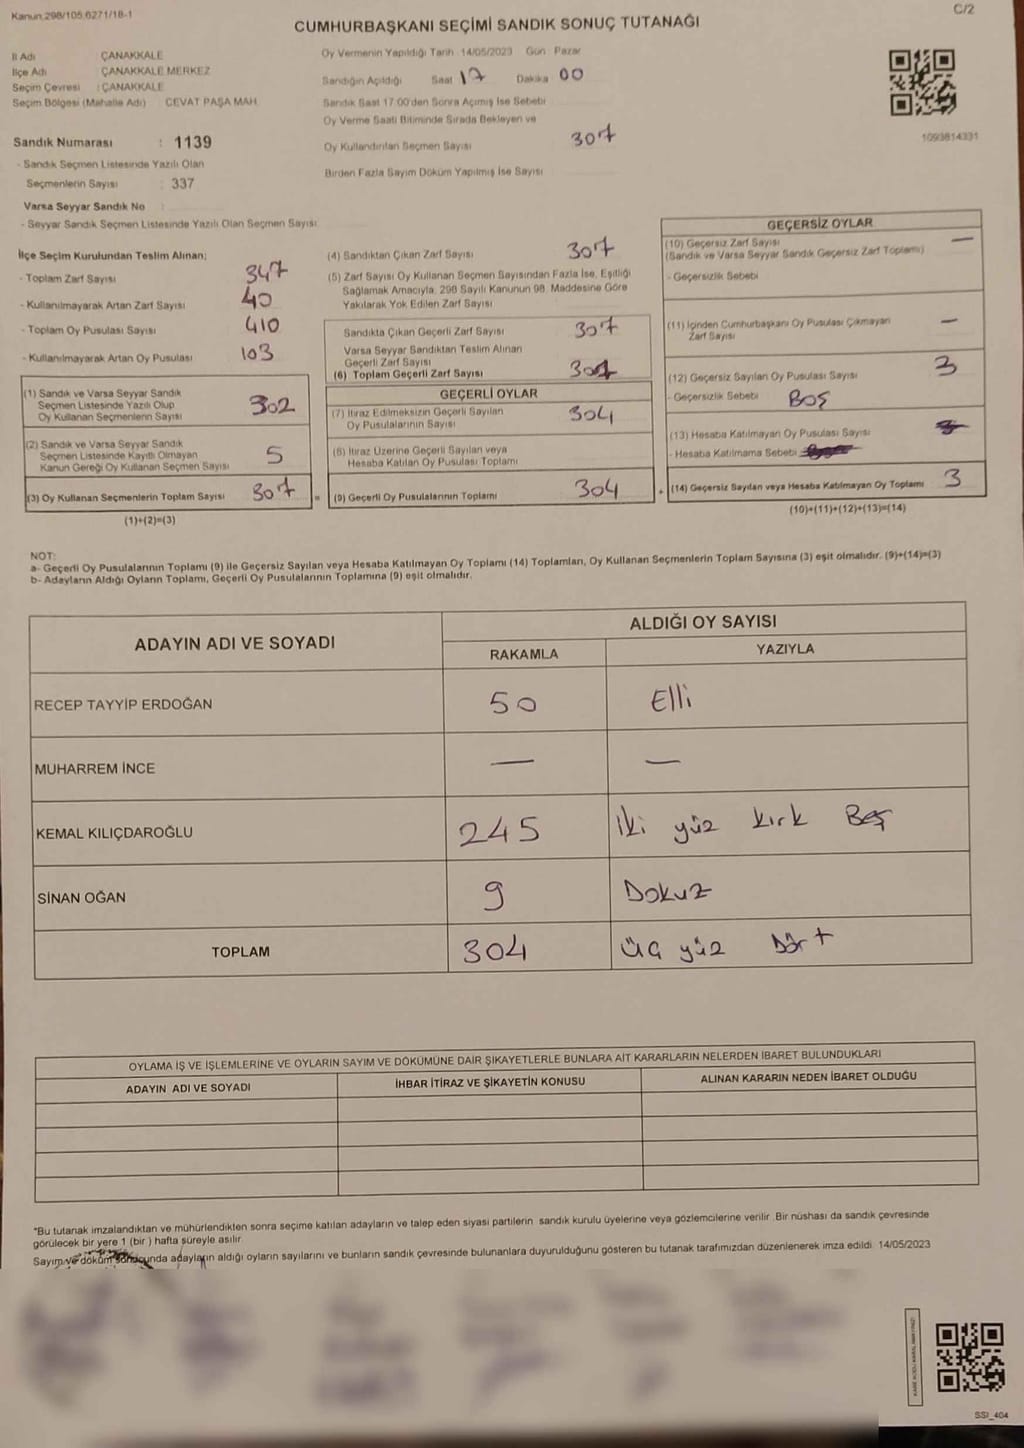 Kanun:298/105,6271/18-1
C/2
CUMHURBAŞKANI SEÇİMİ SANDIK SONUÇ TUTANAĞI
İl Adı : ÇANAKKALE
İlçe Adı : ÇANAKKALE MERKEZ
Seçim Çevresi : ÇANAKKALE
Seçim Bölgesi (Mahalle Adı) : CEVAT PAŞA MAH.
Sandık Numarası : 1139
- Sandık Seçmen Listesinde Yazılı Olan
Seçmenlerin Sayısı : 337
Varsa Seyyar Sandık No :
- Seyyar Sandık Seçmen Listesinde Yazılı Olan Seçmen Sayısı:
Oy Vermenin Yapıldığı Tarih : 14/05/2023 Gün : Pazar
Sandığın Açıldığı Saat 17 Dakika 00
Sandık Saat 17.00'den Sonra Açımış İse Sebebi :
Oy Verme Saati Bitiminde Sırada Bekleyen ve
Oy Kullandırılan Seçmen Sayısı 307
Birden Fazla Sayım Döküm Yapılmış İse Sayısı :
1093814331
İlçe Seçim Kurulundan Teslim Alınan;
- Toplam Zarf Sayısı 347
- Kullanılmayarak Artan Zarf Sayısı 40
- Toplam Oy Pusulası Sayısı 410
- Kullanılmayarak Artan Oy Pusulası 103
(1) Sandık ve Varsa Seyyar Sandık
Seçmen Listesinde Yazılı Olup
Oy Kullanan Seçmenlerin Sayısı 302
(2) Sandık ve Varsa Seyyar Sandık
Seçmen Listesinde Kayıtlı Olmayan
Kanun Gereği Oy Kullanan Seçmen Sayısı 5
(3) Oy Kullanan Seçmenlerin Toplam Sayısı 307 =
(1)+(2)=(3)
(4) Sandıktan Çıkan Zarf Sayısı 307
(5) Zarf Sayısı Oy Kullanan Seçmen Sayısından Fazla İse, Eşitliği
Sağlamak Amacıyla, 298 Sayılı Kanunun 98. Maddesine Göre
Yakılarak Yok Edilen Zarf Sayısı
Sandıkta Çıkan Geçerli Zarf Sayısı 307
Varsa Seyyar Sandıktan Teslim Alınan
Geçerli Zarf Sayısı
(6) Toplam Geçerli Zarf Sayısı 307
GEÇERLİ OYLAR
(7) İtiraz Edilmeksizin Geçerli Sayılan
Oy Pusulalarının Sayısı 304
(8) İtiraz Üzerine Geçerli Sayılan veya
Hesaba Katılan Oy Pusulası Toplamı
(9) Geçerli Oy Pusulalarının Toplamı 304 +
GEÇERSİZ OYLAR
(10) Geçersiz Zarf Sayısı —
(Sandık ve Varsa Seyyar Sandık Geçersiz Zarf Toplamı)
- Geçersizlik Sebebi
(11) İçinden Cumhurbaşkanı Oy Pusulası Çıkmayan
Zarf Sayısı —
(12) Geçersiz Sayılan Oy Pusulası Sayısı 3
- Geçersizlik Sebebi BOŞ
(13) Hesaba Katılmayan Oy Pusulası Sayısı
- Hesaba Katılmama Sebebi
(14) Geçersiz Sayılan veya Hesaba Katılmayan Oy Toplamı 3
(10)+(11)+(12)+(13)=(14)
NOT:
a- Geçerli Oy Pusulalarının Toplamı (9) ile Geçersiz Sayılan veya Hesaba Katılmayan Oy Toplamı (14) Toplamları, Oy Kullanan Seçmenlerin Toplam Sayısına (3) eşit olmalıdır. (9)+(14)=(3)
b- Adayların Aldığı Oyların Toplamı, Geçerli Oy Pusulalarının Toplamına (9) eşit olmalıdır.
ADAYIN ADI VE SOYADI
ALDIĞI OY SAYISI
RAKAMLA YAZIYLA
RECEP TAYYİP ERDOĞAN 50 Elli
MUHARREM İNCE — —
KEMAL KILIÇDAROĞLU 245 İki yüz kırk Beş
SİNAN OĞAN 9 Dokuz
TOPLAM 304 üç yüz Dört
OYLAMA İŞ VE İŞLEMLERİNE VE OYLARIN SAYIM VE DÖKÜMÜNE DAİR ŞİKAYETLERLE BUNLARA AİT KARARLARIN NELERDEN İBARET BULUNDUKLARI
ADAYIN ADI VE SOYADI İHBAR İTİRAZ VE ŞİKAYETİN KONUSU ALINAN KARARIN NEDEN İBARET OLDUĞU
*Bu tutanak imzalandıktan ve mühürlendikten sonra seçime katılan adayların ve talep eden siyasi partilerin sandık kurulu üyelerine veya gözlemcilerine verilir. Bir nüshası da sandık çevresinde
görülecek bir yere 1 (bir ) hafta süreyle asılır.
Sayım ve döküm sonucunda adayların aldığı oyların sayılarını ve bunların sandık çevresinde bulunanlara duyurulduğunu gösteren bu tutanak tarafımızdan düzenlenerek imza edildi. 14/05/2023
SSI_404